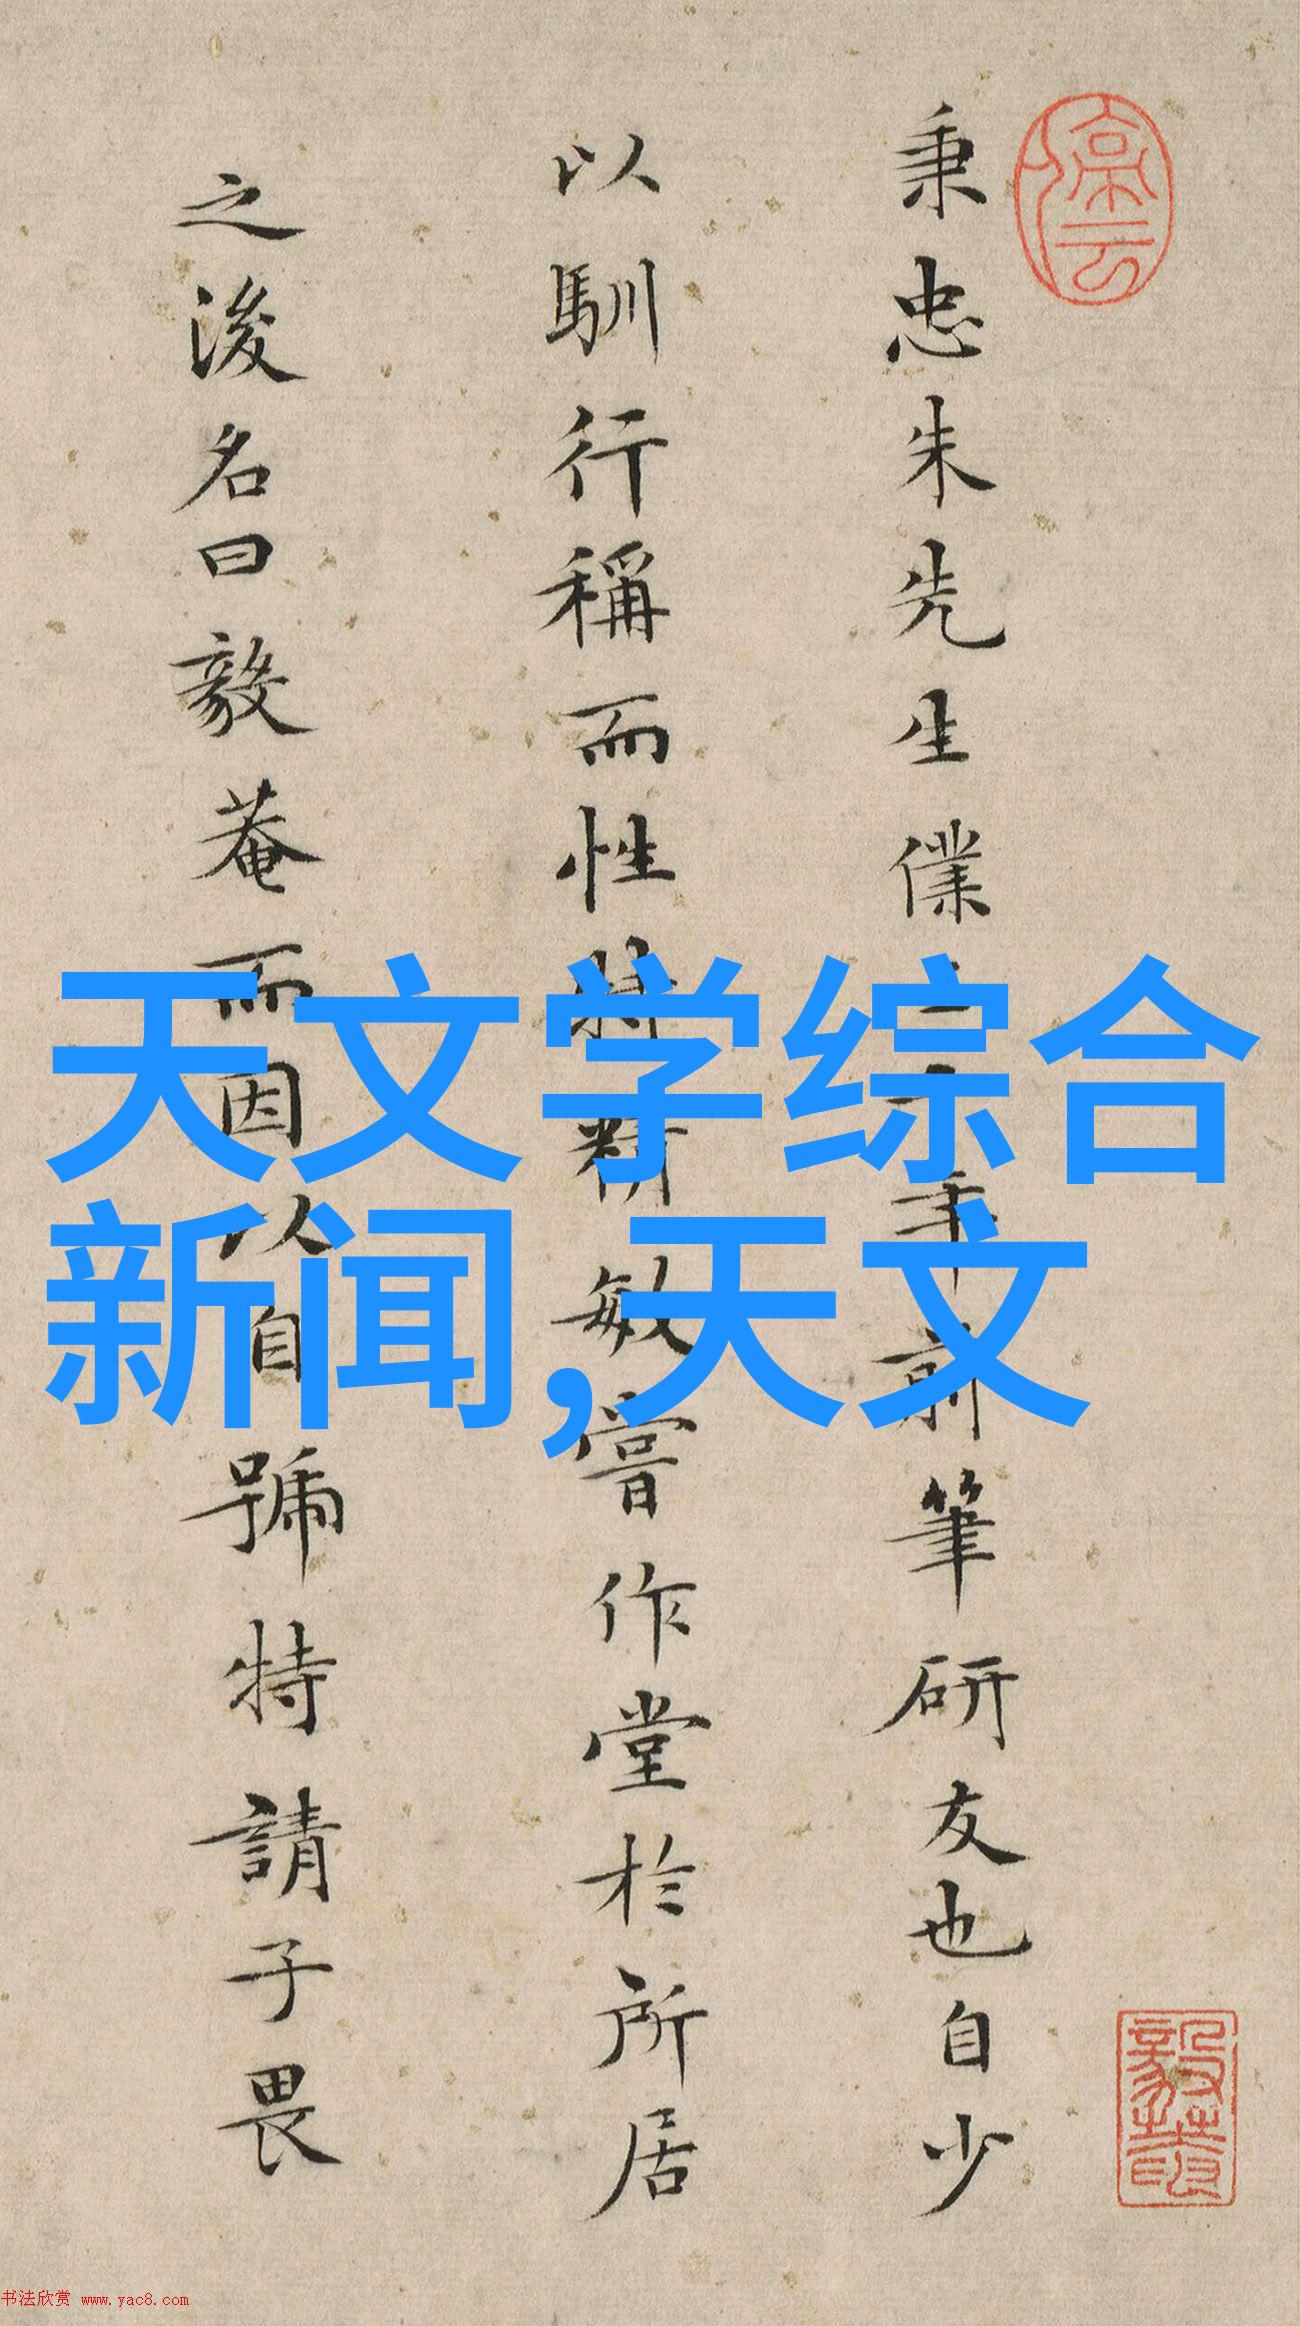 秉忠朱先生僕二十年前筆研友也自少
以馴行稱而性特精敏嘗作堂於所居
之後名曰毅菴而因以自號特請子畏
天文学综合
新闻,天文
书法欣赏 www.yac8.com